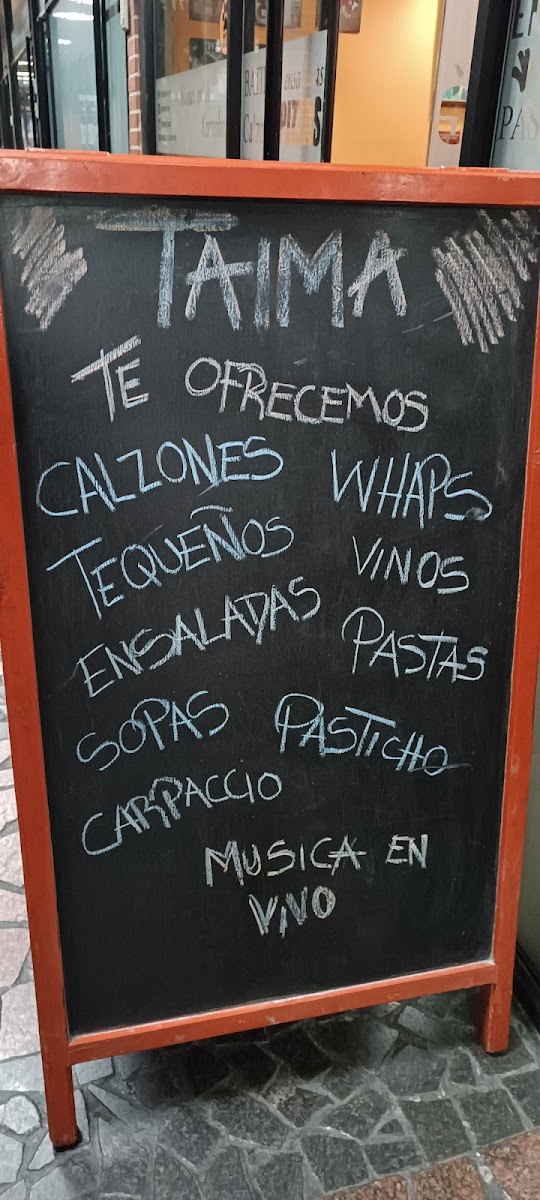 TAIMA
TE OFRECEMOS
CALZONES WHAPS
TEQUEÑOS VINOS
ENSALADAS PASTAS
SOPAS PASTICHO
CARPACCIO
MUSICA EN
VIVO